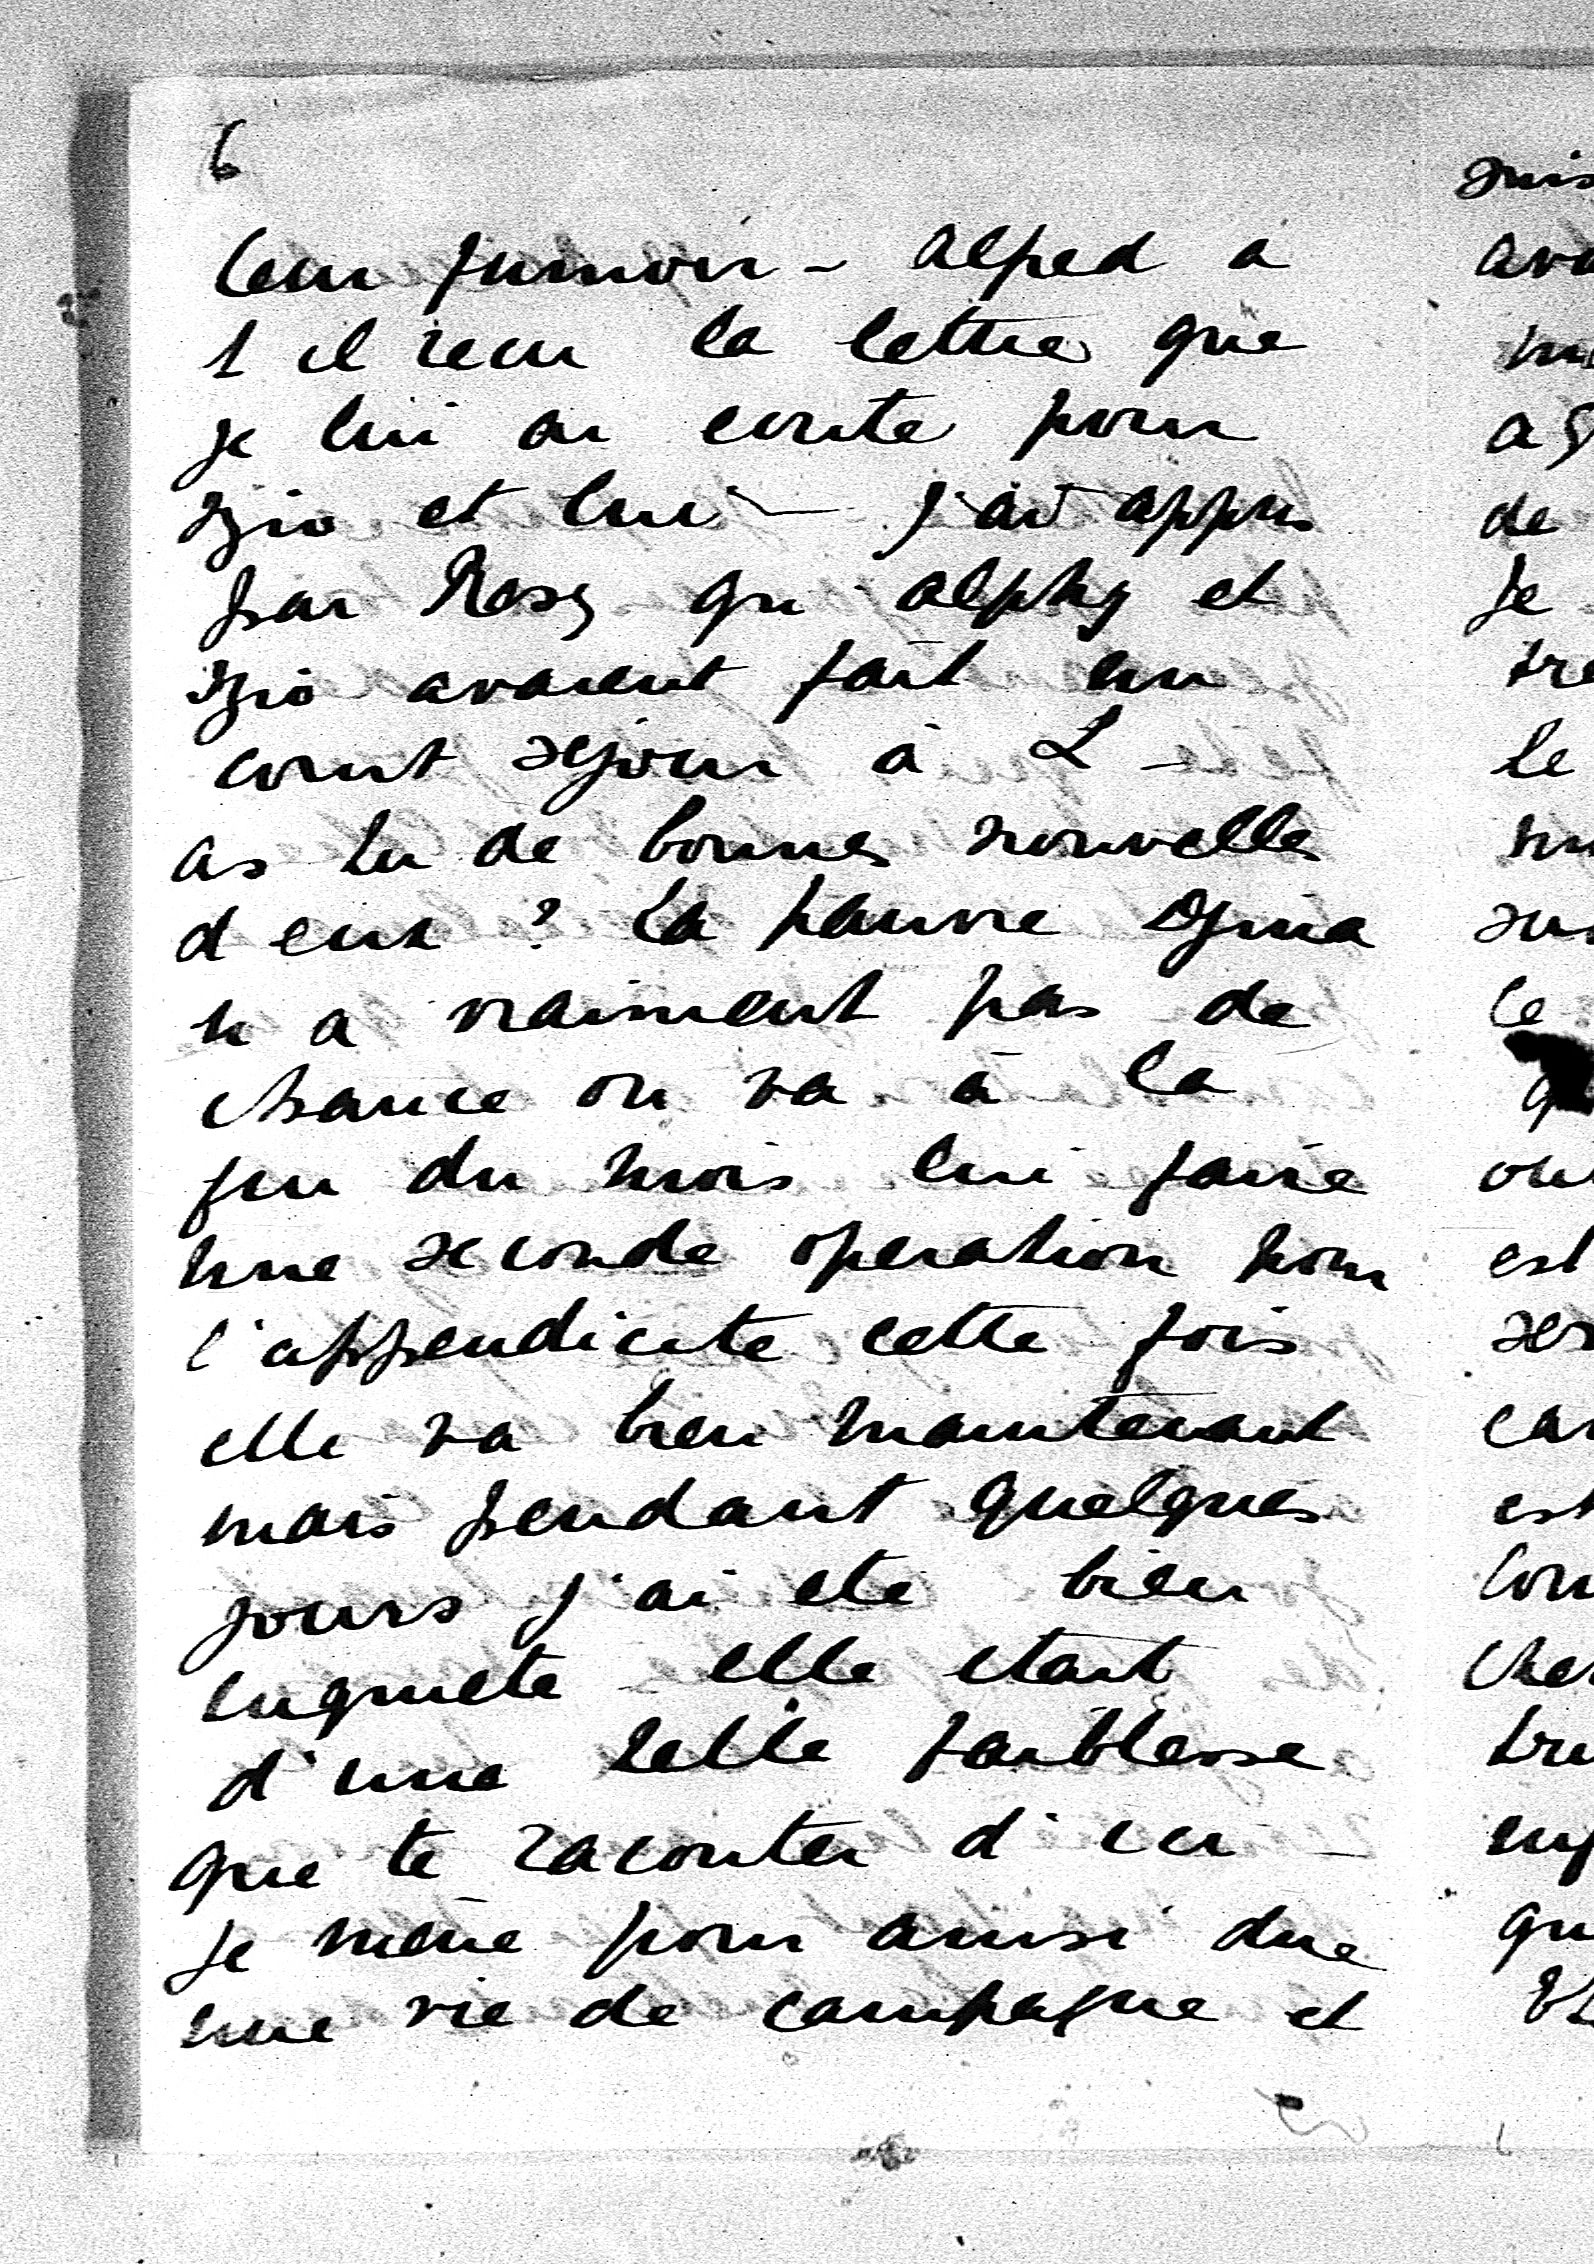 6
leur fumoir - alfred a
t il recu la lettre que
je lui ai ecrite pour
Izio et lui - j'ai appris
par Rosy qu alphy et
Izio avaient fait un
court sejour à L -
as tu de bonnes nouvelles
d eux ? La pauvre Djina
n a vraiment pas de
chance on va à la
fin du mois lui faire
une seconde operation pour
l'appendicite cette fois
elle va bien maintenant
mais pendant quelques
jours j'ai ete bien
inquiete - elle etait
d'une telle faiblesse
que te raconter d'ici -
Je mène pour ainsi dire
une vie de campagne et
suis
de
Je
le
ce
est
est